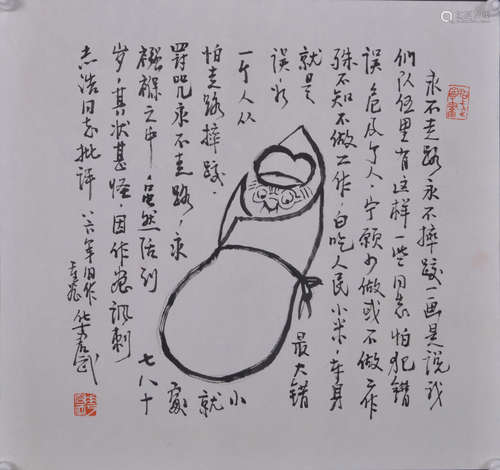 永不走路永不摔跤一画是说我
们队伍里有这样一些同志怕犯错
误危及个人，宁愿少做或不做工作
殊不知不做工作，白吃人民小米，本身
就是最大错
误，
一个人从小
怕走路摔跤，就
罚咒永不走路，永處
襁褓之中，虽然活到七八十
岁，其状甚怪，因作 讽刺
志浩同志批评 八六年旧作
华君武